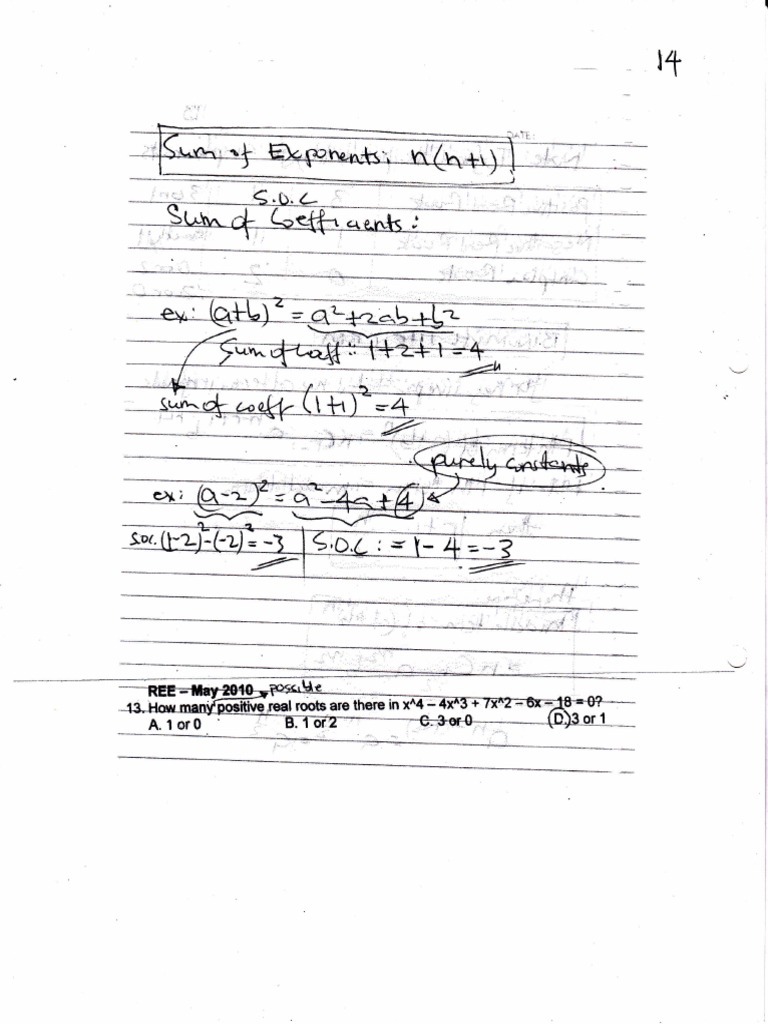 14
DATE:
Sum of Exponents: n(n+1)
S.O.C
Sum of Coefficients:
ex: (a+b)² = a²+2ab+b²
Sum of Coeff: 1+2+1=4
sum of coeff (1+1)² = 4
purely constants
ex: (a-2)² = a²-4a+4
S.O.C. (1-2)²-(-2)² = -3 | S.O.C: = 1-4 = -3
REE – May 2010 possible
13. How many positive real roots are there in x^4 – 4x^3 + 7x^2 – 6x – 18 = 0?
A. 1 or 0 B. 1 or 2 C. 3 or 0 D. 3 or 1